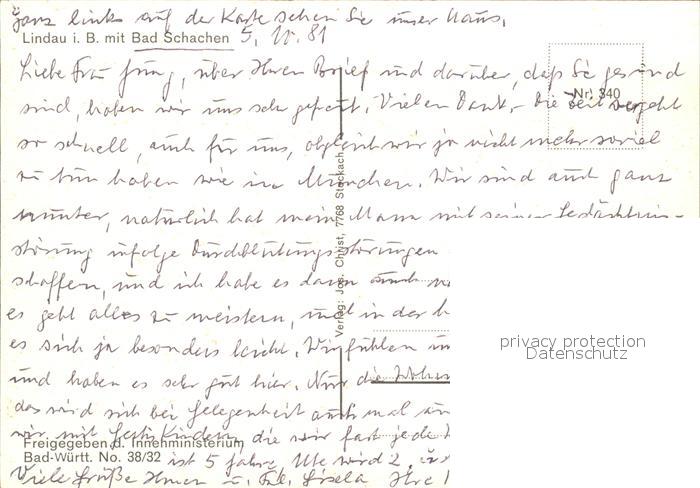 Ganz links auf der Karte sehen Sie unser Haus.
Lindau i. B. mit Bad Schachen 5. 10. 81
Liebe Frau Jung, über Ihren Brief und darüber, daß Sie gesund
Nr. 340
sind, haben wir uns sehr gefreut. Vielen Dank. Die Zeit vergeht
so schnell, auch für uns, obgleich wir ja nicht mehr soviel
zu tun haben wie in München. Wir sind auch ganz
munter, natürlich hat mein Mann mit seiner Gedächtnis-
störung infolge Durchblutungsstörungen
schaffen, und ich habe es dann auch
es geht alles zu meistern, und in der
es sich ja besonders leicht. Wir fühlen
und haben es sehr gut hier. Nur die
das wird sich bei Gelegenheit auch mal
wir mit Kindern, die wir fast jede
Freigegeben d. Innenministerium
Bad-Württ. No. 38/32 ist 5 Jahre, Ute wird 2,
Viele Grüße Ihnen u. Frl. Gisela Ihre
Verlag: Jos. Christ, 7768 Stockach
privacy protection
Datenschutz